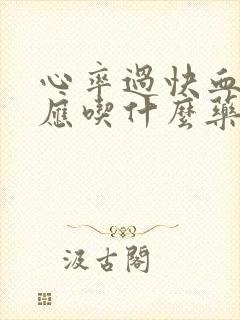 心率過快血
應喫什麼藥
汲古閣